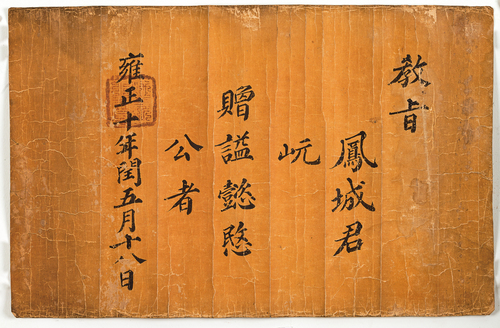 教㫖
鳳城君
岏
贈諡懿愍
公者
雍正十年閏五月十八日